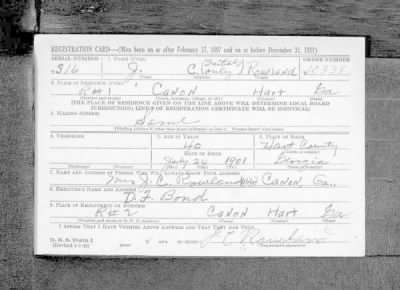 REGISTRATION CARD—(Men born on or after February 17, 1897 and on or before December 31, 1921)
SERIAL NUMBER 1. NAME (Print) ORDER NUMBER
316 J. C. (only) (Initials) Rowland 10338
2. PLACE OF RESIDENCE (Print)
R#1 Canon Hart Ga
(Number and street) (Town, township, village, or city) (County) (State)
[THE PLACE OF RESIDENCE GIVEN ON THE LINE ABOVE WILL DETERMINE LOCAL BOARD
JURISDICTION; LINE 2 OF REGISTRATION CERTIFICATE WILL BE IDENTICAL]
3. MAILING ADDRESS
Same
[Mailing address if other than place indicated on line 2. If same insert word same]
4. TELEPHONE 5. AGE IN YEARS 6. PLACE OF BIRTH
40 Hart County
DATE OF BIRTH
July 24 1901 Georgia
7. NAME AND ADDRESS OF PERSON WHO WILL ALWAYS KNOW YOUR ADDRESS
Mrs J. C. Rowland Canon, Ga.
8. EMPLOYER'S NAME AND ADDRESS
D. F. Bond
9. PLACE OF EMPLOYMENT OR BUSINESS
R#2 Canon Hart Ga
(Number and street or R. F. D. number) (Town) (County) (State)
I AFFIRM THAT I HAVE VERIFIED ABOVE ANSWERS AND THAT THEY ARE TRUE.
D. S. S. Form 1
(Revised 1-1-42) J C Rowland